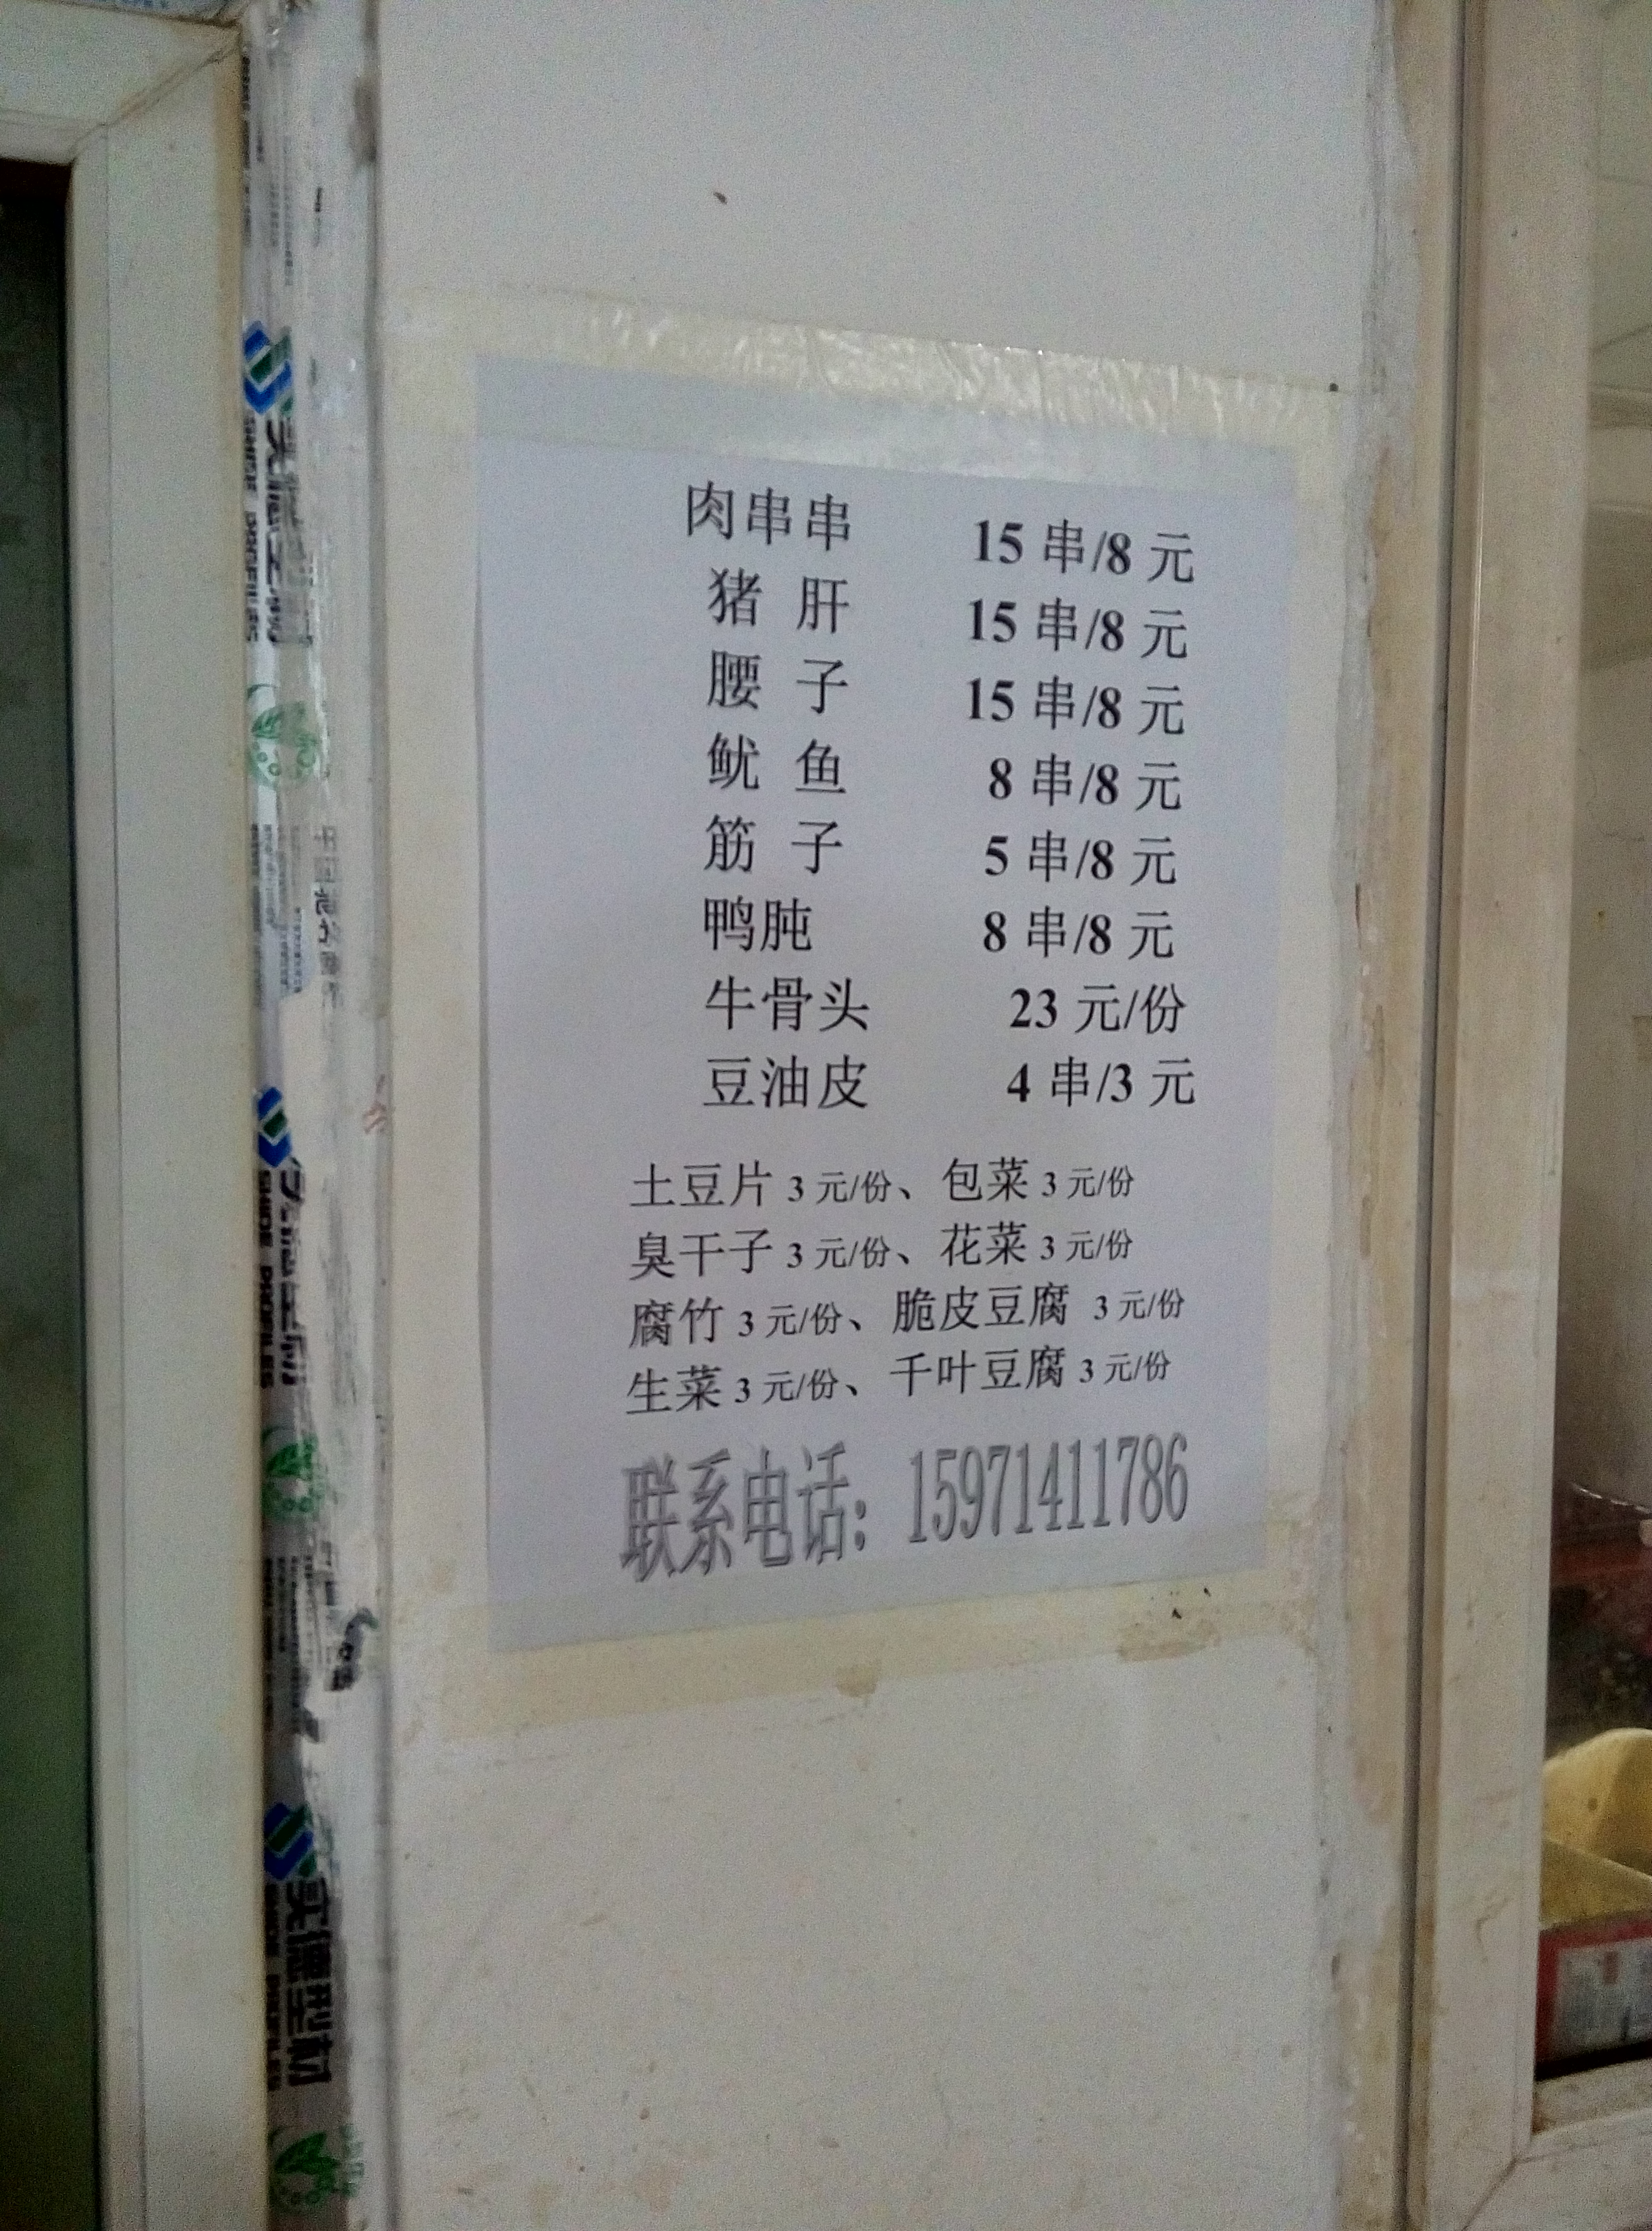 肉串串 15 串/8 元
猪 肝 15 串/8 元
腰 子 15 串/8 元
鱿 鱼 8 串/8 元
筋 子 5 串/8 元
鸭肫 8 串/8 元
牛骨头 23 元/份
豆油皮 4 串/3 元
土豆片 3 元/份、包菜 3 元/份
臭干子 3 元/份、花菜 3 元/份
腐竹 3 元/份、脆皮豆腐 3 元/份
生菜 3 元/份、千叶豆腐 3 元/份
联系电话：15971411786
实德型材
SHIDE PROFILES